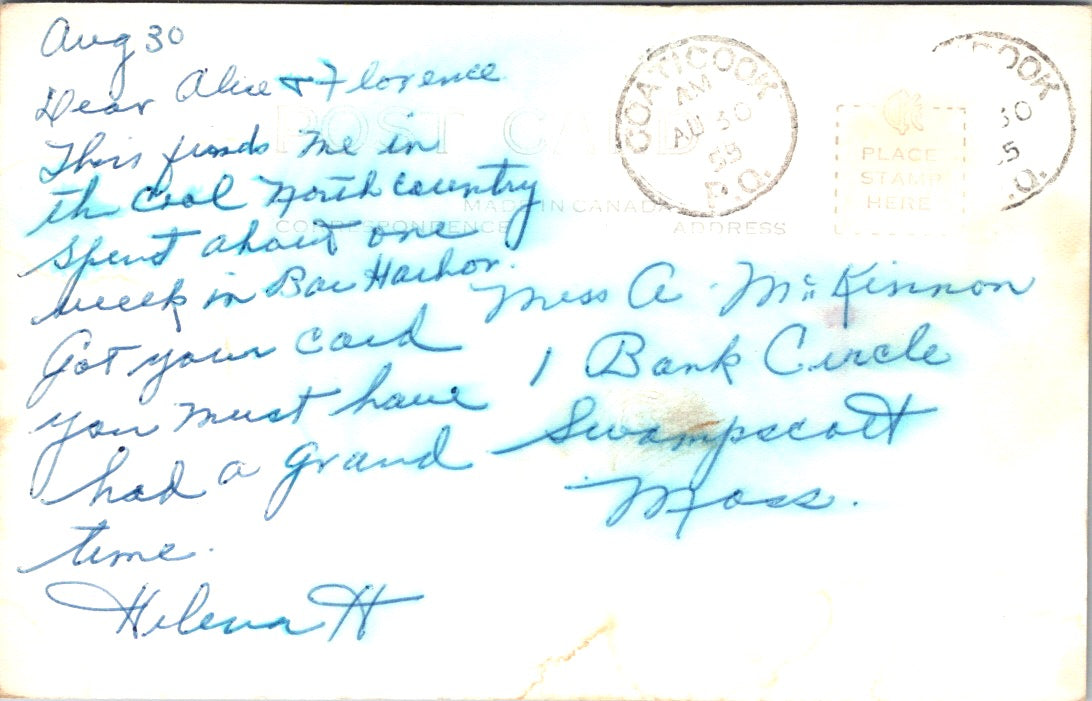 Aug 30
Dear Alice & Florence
This finds me in
th cool North country
spent about one
week in Bar Harbor.
Got your card
you must have
had a grand
time.
Helena H
POST CARD
MADE IN CANADA
CORRESPONDENCE
ADDRESS
COATICOOK
AM
AU 30
55
P.Q.
OOK
30
5
.Q.
PLACE
STAMP
HERE
Miss A. McKinnon
1 Bank Circle
Swampscott
Mass.